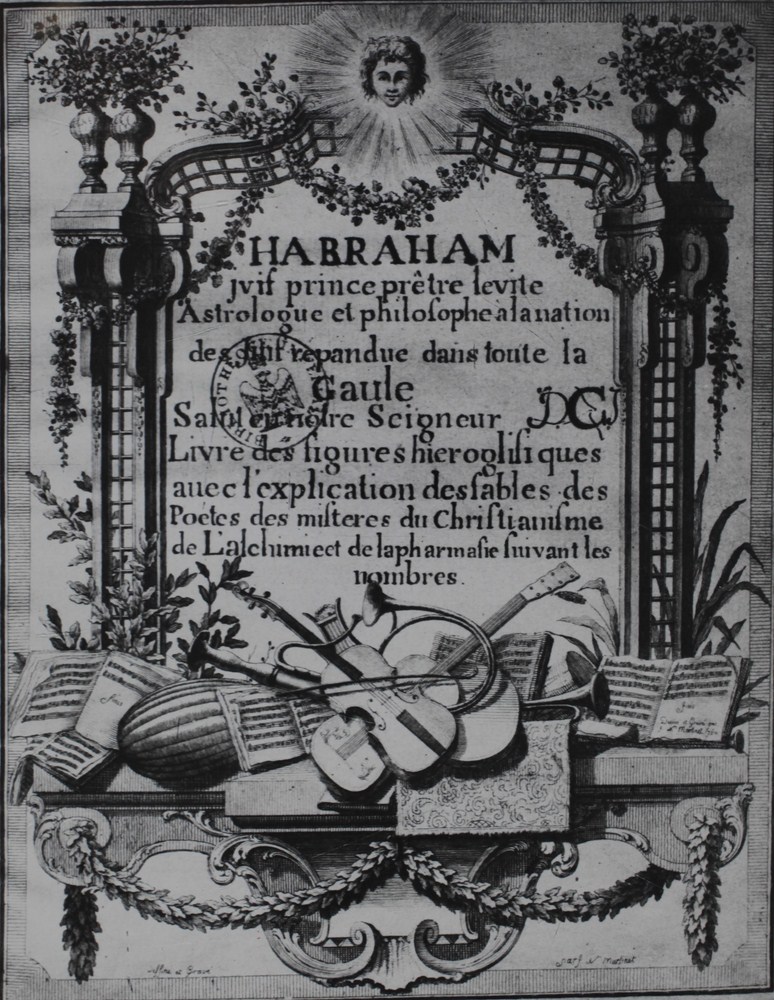 HABRAHAM
jvif prince prêtre levite
Astrologue et philosophe à la nation
des juif répandue dans toute la
Gaule
Salut en notre Seigneur DCJ
Livre des figures hieroglifiques
avec l'explication des fables des
Poëtes des misteres du Christianisme
de L'alchimie et de la pharmasie suivant les
nombres.